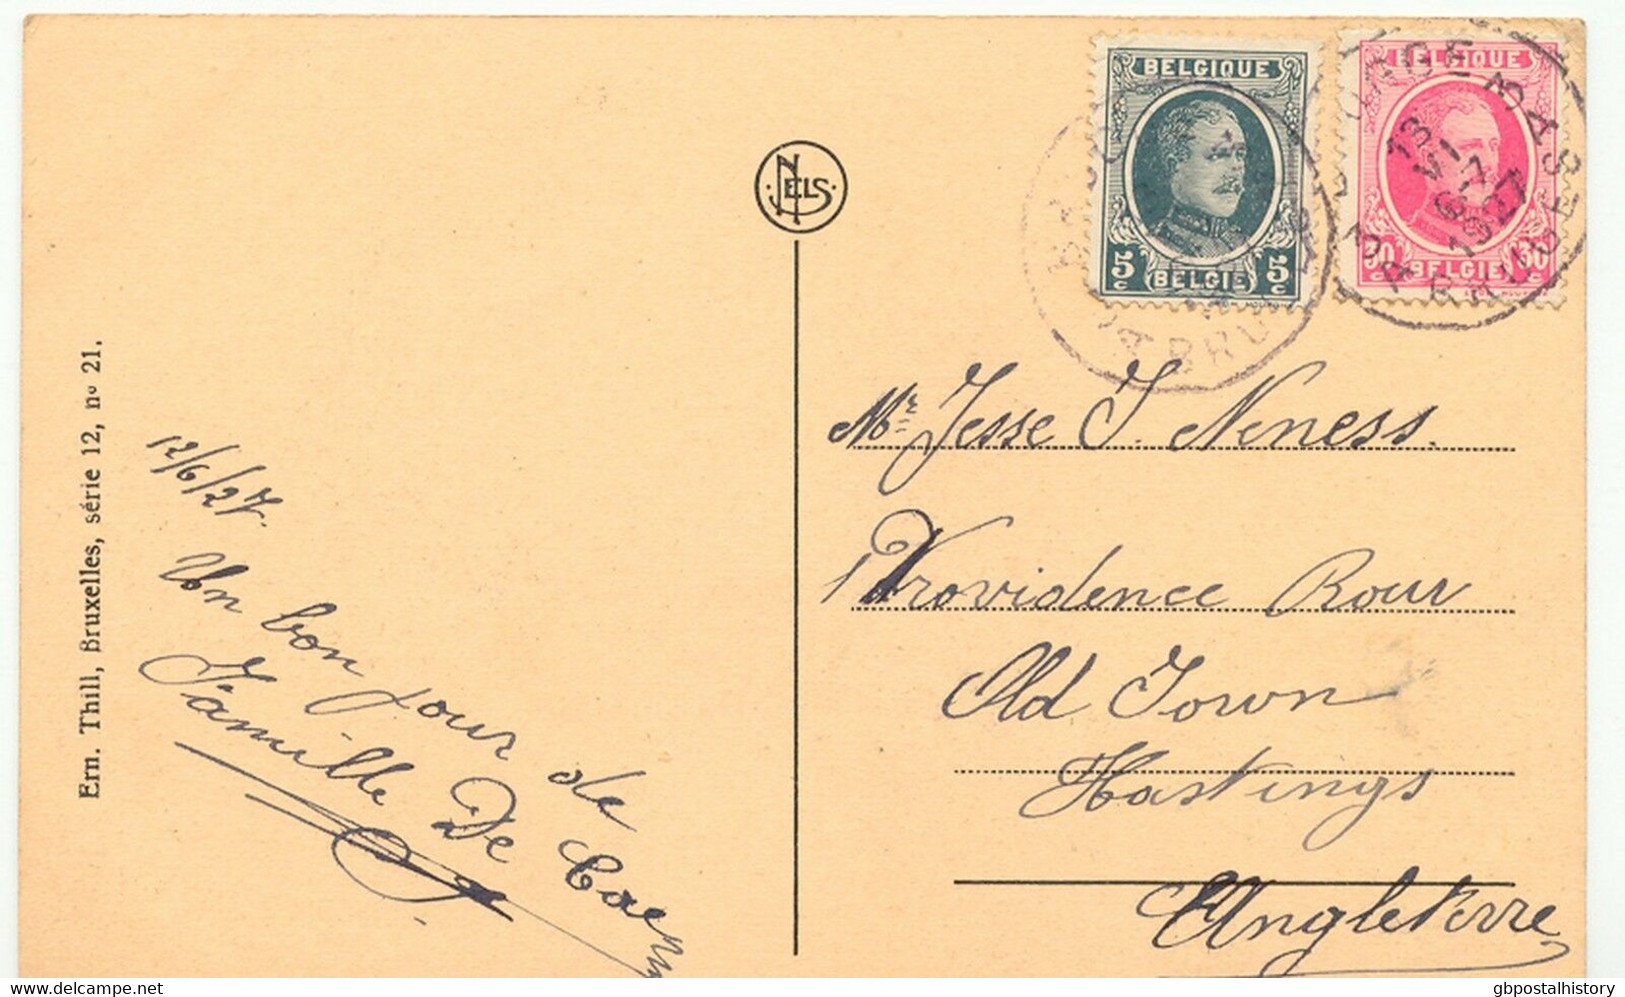 BELGIQUE
5c 5c
BELGIE
BELGIQUE
BELGIE
13
VI
6-7
1927
BRUGES
NELS
Ern. Thill, Bruxelles, série 12, nº 21.
12/6/27.
Un bon jour de
Famille De
Mr Jesse J. Neness.
1 Providence Rour
Old Town
Hastings
Angleterre
www.delcampe.net
gbpostalhistory